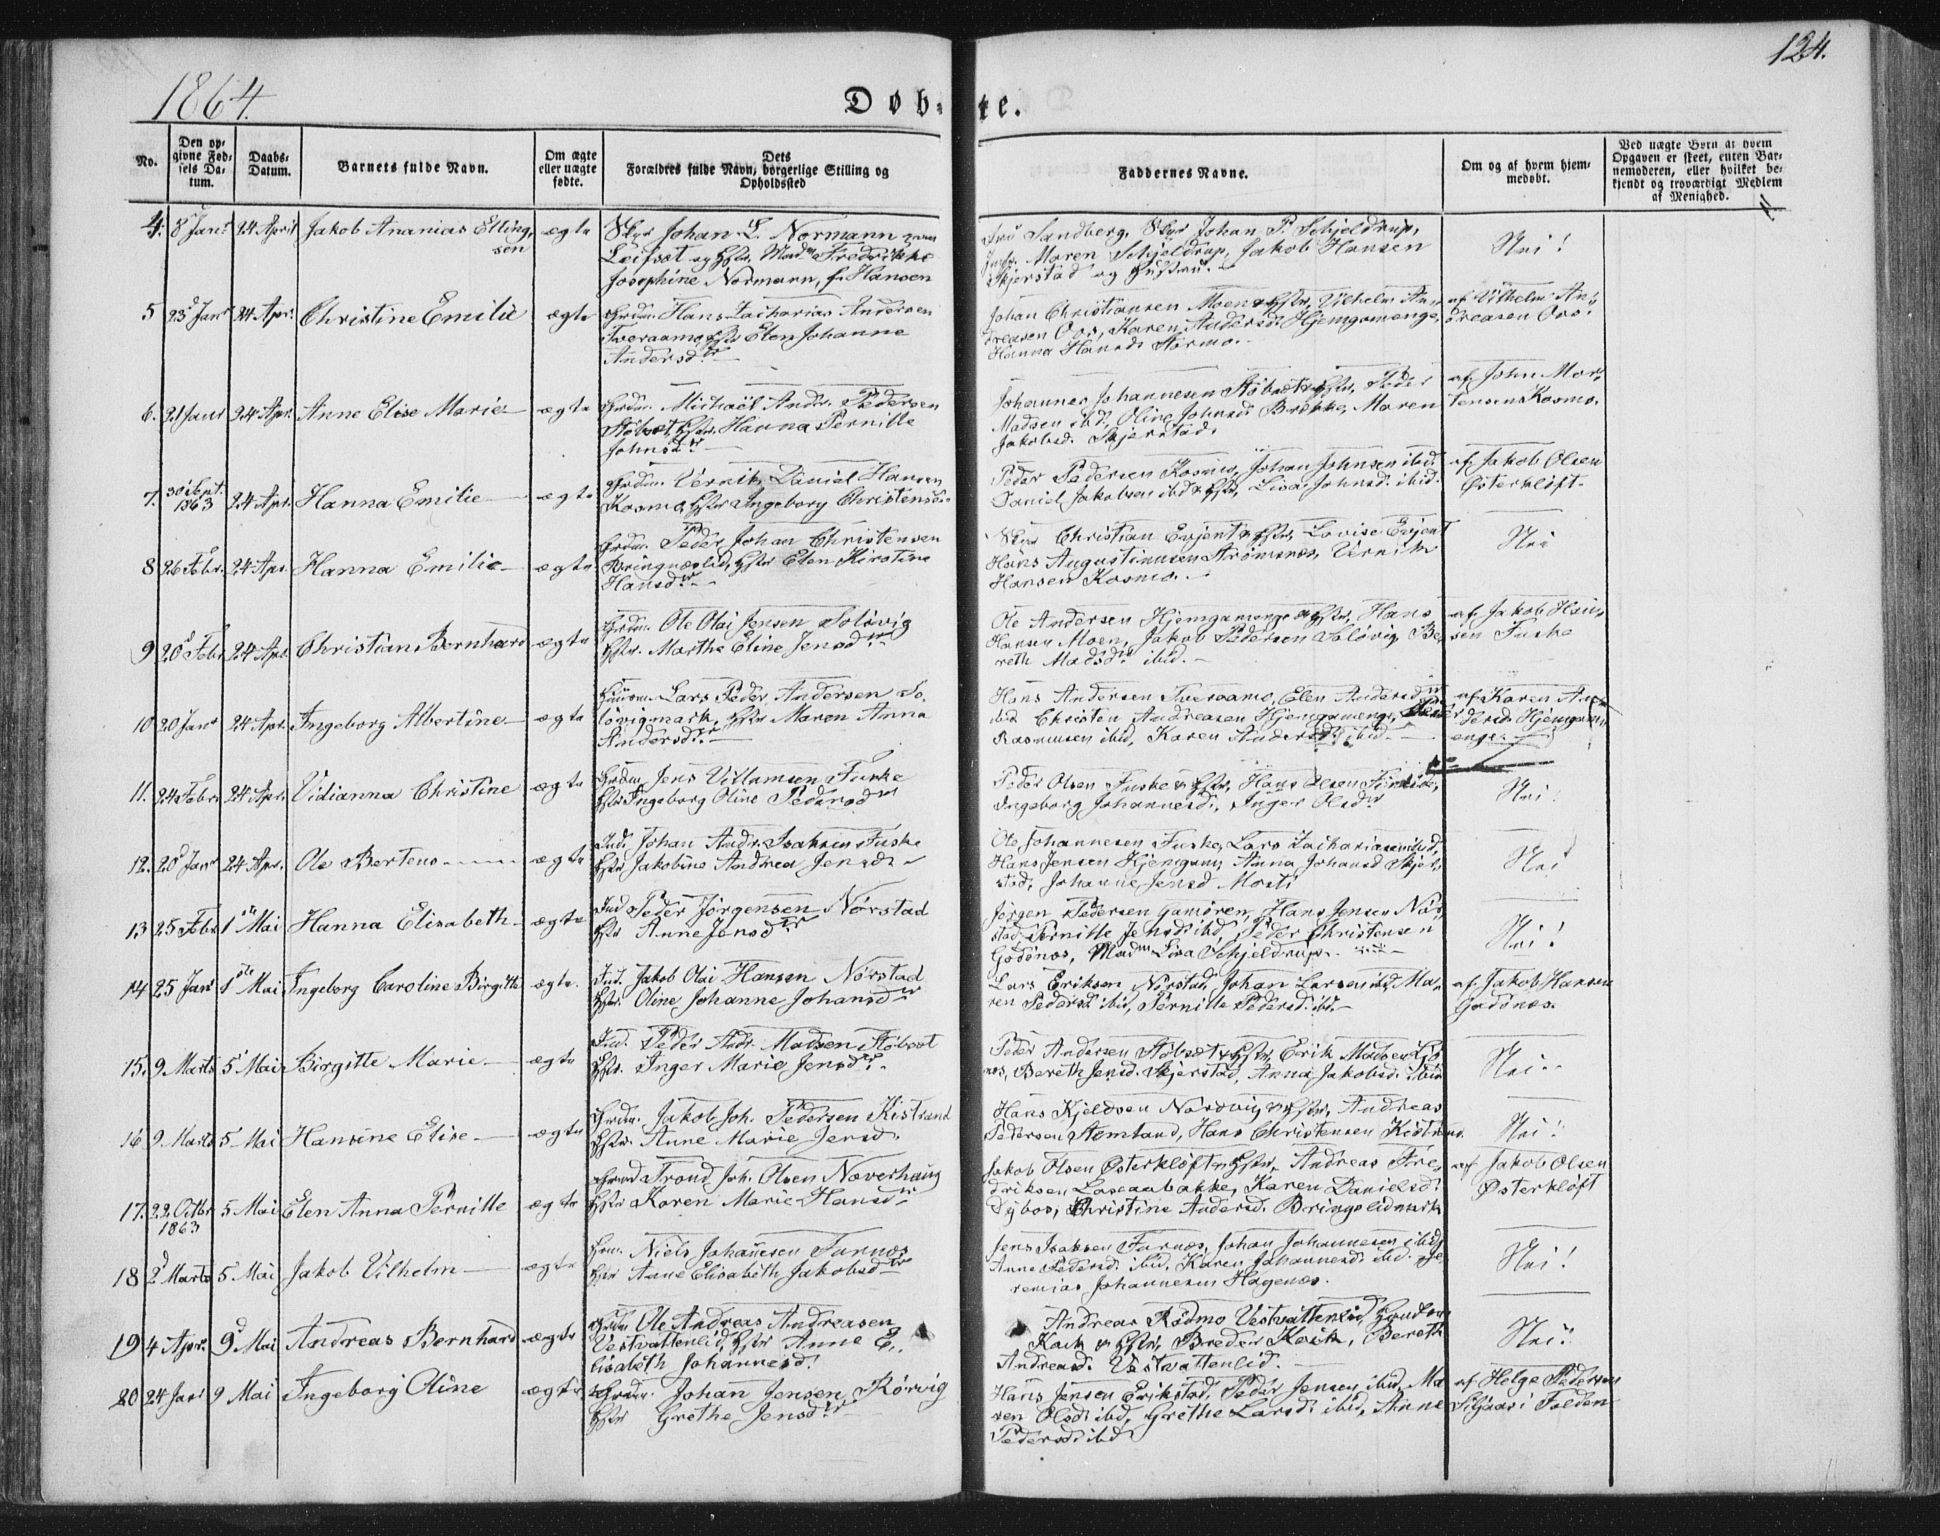 124.
1864.
Døbte.
No.
Den opgivne Fødsels Datum.
Daabs-Datum.
Barnets fulde Navn.
Om ægte eller uægte fødte.
Dets Forældres fulde Navn, borgerlige Stilling og Opholdssted
Faddernes Navne.
Om og af hvem hjemmedøbt.
Ved uægte Børn at hvem Opgaven er skeet, enten Barnemoderen, eller hvilket bekjendt og troværdigt Medlem af Menighed.
4. 8 Janr 24 April Jakob Ananias Elling,
sen
ægte
Johan L. Normann
Leifset og Hstr. Mad. Fredrikke
Josephine Normann, f. Hansen
Sandberg, Johan P. Schjeldrup,
Maren Schjeldrup, Jakob Hansen
Skjerstad og Hustru.
Nei!
5 23 Janr 24 Apr. Christine Emilie ægte
Hans Zacharias Andersen
Tveraamo, Hstr Elen Johanne
Andersdtr
Johan Christiansen Moen & Hstr, Vilhelm An,
dreasen Oos, Karen Andersd. Hjemgamenge,
Hanna Hansd.
af Vilhelm An,
dreasen Oos.
6. 21 Janr 24 Apr. Anne Elise Marie ægte
Michael Andr. Pedersen
Støbset, Hstr. Hanna Pernille
Johnsdtr
Johannes Johannesen Støbset & Hstr, Peder
Madsen ibid, Oline Johnsd. Brekke, Maren
Jakobsd. Skjerstad.
af John Mor,
tensen Kosmo.
7. 30 Sept. 1863 24 Apr. Hanna Emilie ægte
Daniel Hansen
Kosmo, Hstr Ingeborg Christensd.
Peder Pedersen Kosmo, Johan Johnsen ibid.
Daniel Jakobsen ibid & Hstr, Lisa Johnsd. ibid.
af Jakob Olsen
Østerkløft
8 26 Febr. 24 Apr. Hanna Emilie ægte
Peder Johan Christensen
Hstr Elen Kirstine
Hansdtr
Christian Evjent & Hstr, Lovise Evjent
Hans Augustinusen Strømsnes,
Hansen Kosmo.
Nei
9 20 Febr 24 Apr. Christian Bernhard ægte
Ole Olai Jensen Soløvig
Hstr. Marthe Eline Jensdtr
Ole Andersen Hjemgamenge & Hstr, Hans
Hansen Moen, Jakob Pedersen Soløvig, Be,
reth Madsdtr ibid.
af Jakob Han,
sen Fuske
10 20 Janr 24 Apr. Ingeborg Albertine ægte
Lars Peder Andersen So,
løvigmark, Hstr Maren Anna
Andersdtr
Hans Andersen Tveraamo, Elen Andersdtr
ibid Christen Andreasen Hjemgamenge, Peder
Rasmusen ibid, Karen Andersd. ibid.
af Karen An,
dersd. Hjemgam,
enge.
11. 24 Febr. 24 Apr. Vidianna Christine ægte
Jens Villamsen Fuske
Hstr Ingeborg Oline Pedersdtr
Peder Olsen Fuske & Hstr, Hans Olsen
Ingeborg Johannesd., Inger Olsdtr
Nei!
12. 20 Janr 24 Apr. Ole Berteus ægte
Ind. Johan Andr. Isaksen Fuske
Hstr Jakobine Andrea Jensdr
Ole Johannesen Fuske, Lars Zachariasen ibid,
Hans Jensen Hjemgam, Anna Johansd Skjer,
stad, Johanne Jensd
Nei
13 25 Febr 1ste Mai Hanna Elisabeth ægte
Ind Peder Jørgensen Nørstad
Hstr Anne Jensdtr
Jørgen Pedersen Gamøren, Hans Jensen Nør,
stad, Pernille Jensd. ibid, Peder Christensen
Godønes, Mad. Lisa Schjeldrup.
Nei!
14 25 Janr 1ste Mai Ingeborg Caroline Birgitte ægte.
Ind. Jakob Olai Hansen Nørstad
Hstr. Oline Johanne Johansdtr
Lars Eriksen Nørstad, Johan Larsen ibid, Ma,
ren Pedersd. ibid, Pernille Pedersd. ibid.
af Jakob Hansen
Godønes.
15. 9 Marts 5 Mai Birgitte Marie ægte
Ind. Peder Andr. Madsen Støbset
Hstr. Inger Marie Jensdtr.
Peder Andersen Støbset & Hstr, Erik Madsen
Bereth Jensd. Skjerstad, Anna Jakobsd. ibid
Nei.
16 9 Marts 5 Mai Hansine Elise ægte
Jakob Joh. Pedersen Kistrand
Hstr. Anne Marie Jensd.
Hans Kjeldsen Nordvig & Hstr, Andreas
Pedersen Stemland, Hans Christensen Kistrand.
Nei!
17. 22 Octbr 1863 5 Mai Elen Anna Pernille ægte
Trond Joh. Olsen Næverhaug
Hstr Karen Marie Hansdr
Jakob Olsen Østerkløft & Hstr, Andreas Fre,
driksen Karen Danielsd.
Christine Andersd.
af Jakob Olsen
Østerkløft
18 2 Marts 5 Mai Jakob Vilhelm ægte
Niels Johannesen Farnæs
Hstr Anne Elisabeth Jakobsdtr
Jens Isaksen Farnæs, Johan Johannesen ibid,
Anne Pedersd. ibid, Karen Johannesd. ibid. Je,
remias Johannesen Hagenæs.
Nei!
19 4 Apr. 9 Mai Andreas Bernhard ægte
Ole Andreas Andreasen
Vestvattenlid, Hstr Anne E,
lisabeth Johannesd.
Andreas Rødmo Vestvattenlid,
& Hstr, Bereth
Andreasd. Vestvattenlid.
Nei!
20 24 Janr 9 Mai Ingeborg Oline ægte
Johan Jensen Kørvig
Hstr Grethe Jensdtr
Hans Jensen Erikstad, Peder Jensen ibid, Ma,
ren Olsd. ibid, Grethe Larsd. ibid, Anne
Pedersd ibid
af Helge Pedersen
i Folden